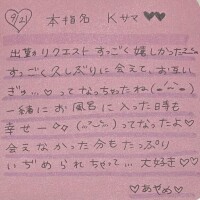 9/21 本指名 Kサマ♥♥
出勤リクエストすっごく嬉しかった
すっごく久しぶりに会えて、お互い
ぎゅ…♡ってなっちゃったね(*´︶`*)
一緒にお風呂に入った時も
幸せー◇◇(*´︶`*)♡ってなったよ♡
会えなかった分もたっぷり
いぢめられちゃって…大好き♡♡
♡あやめ♡